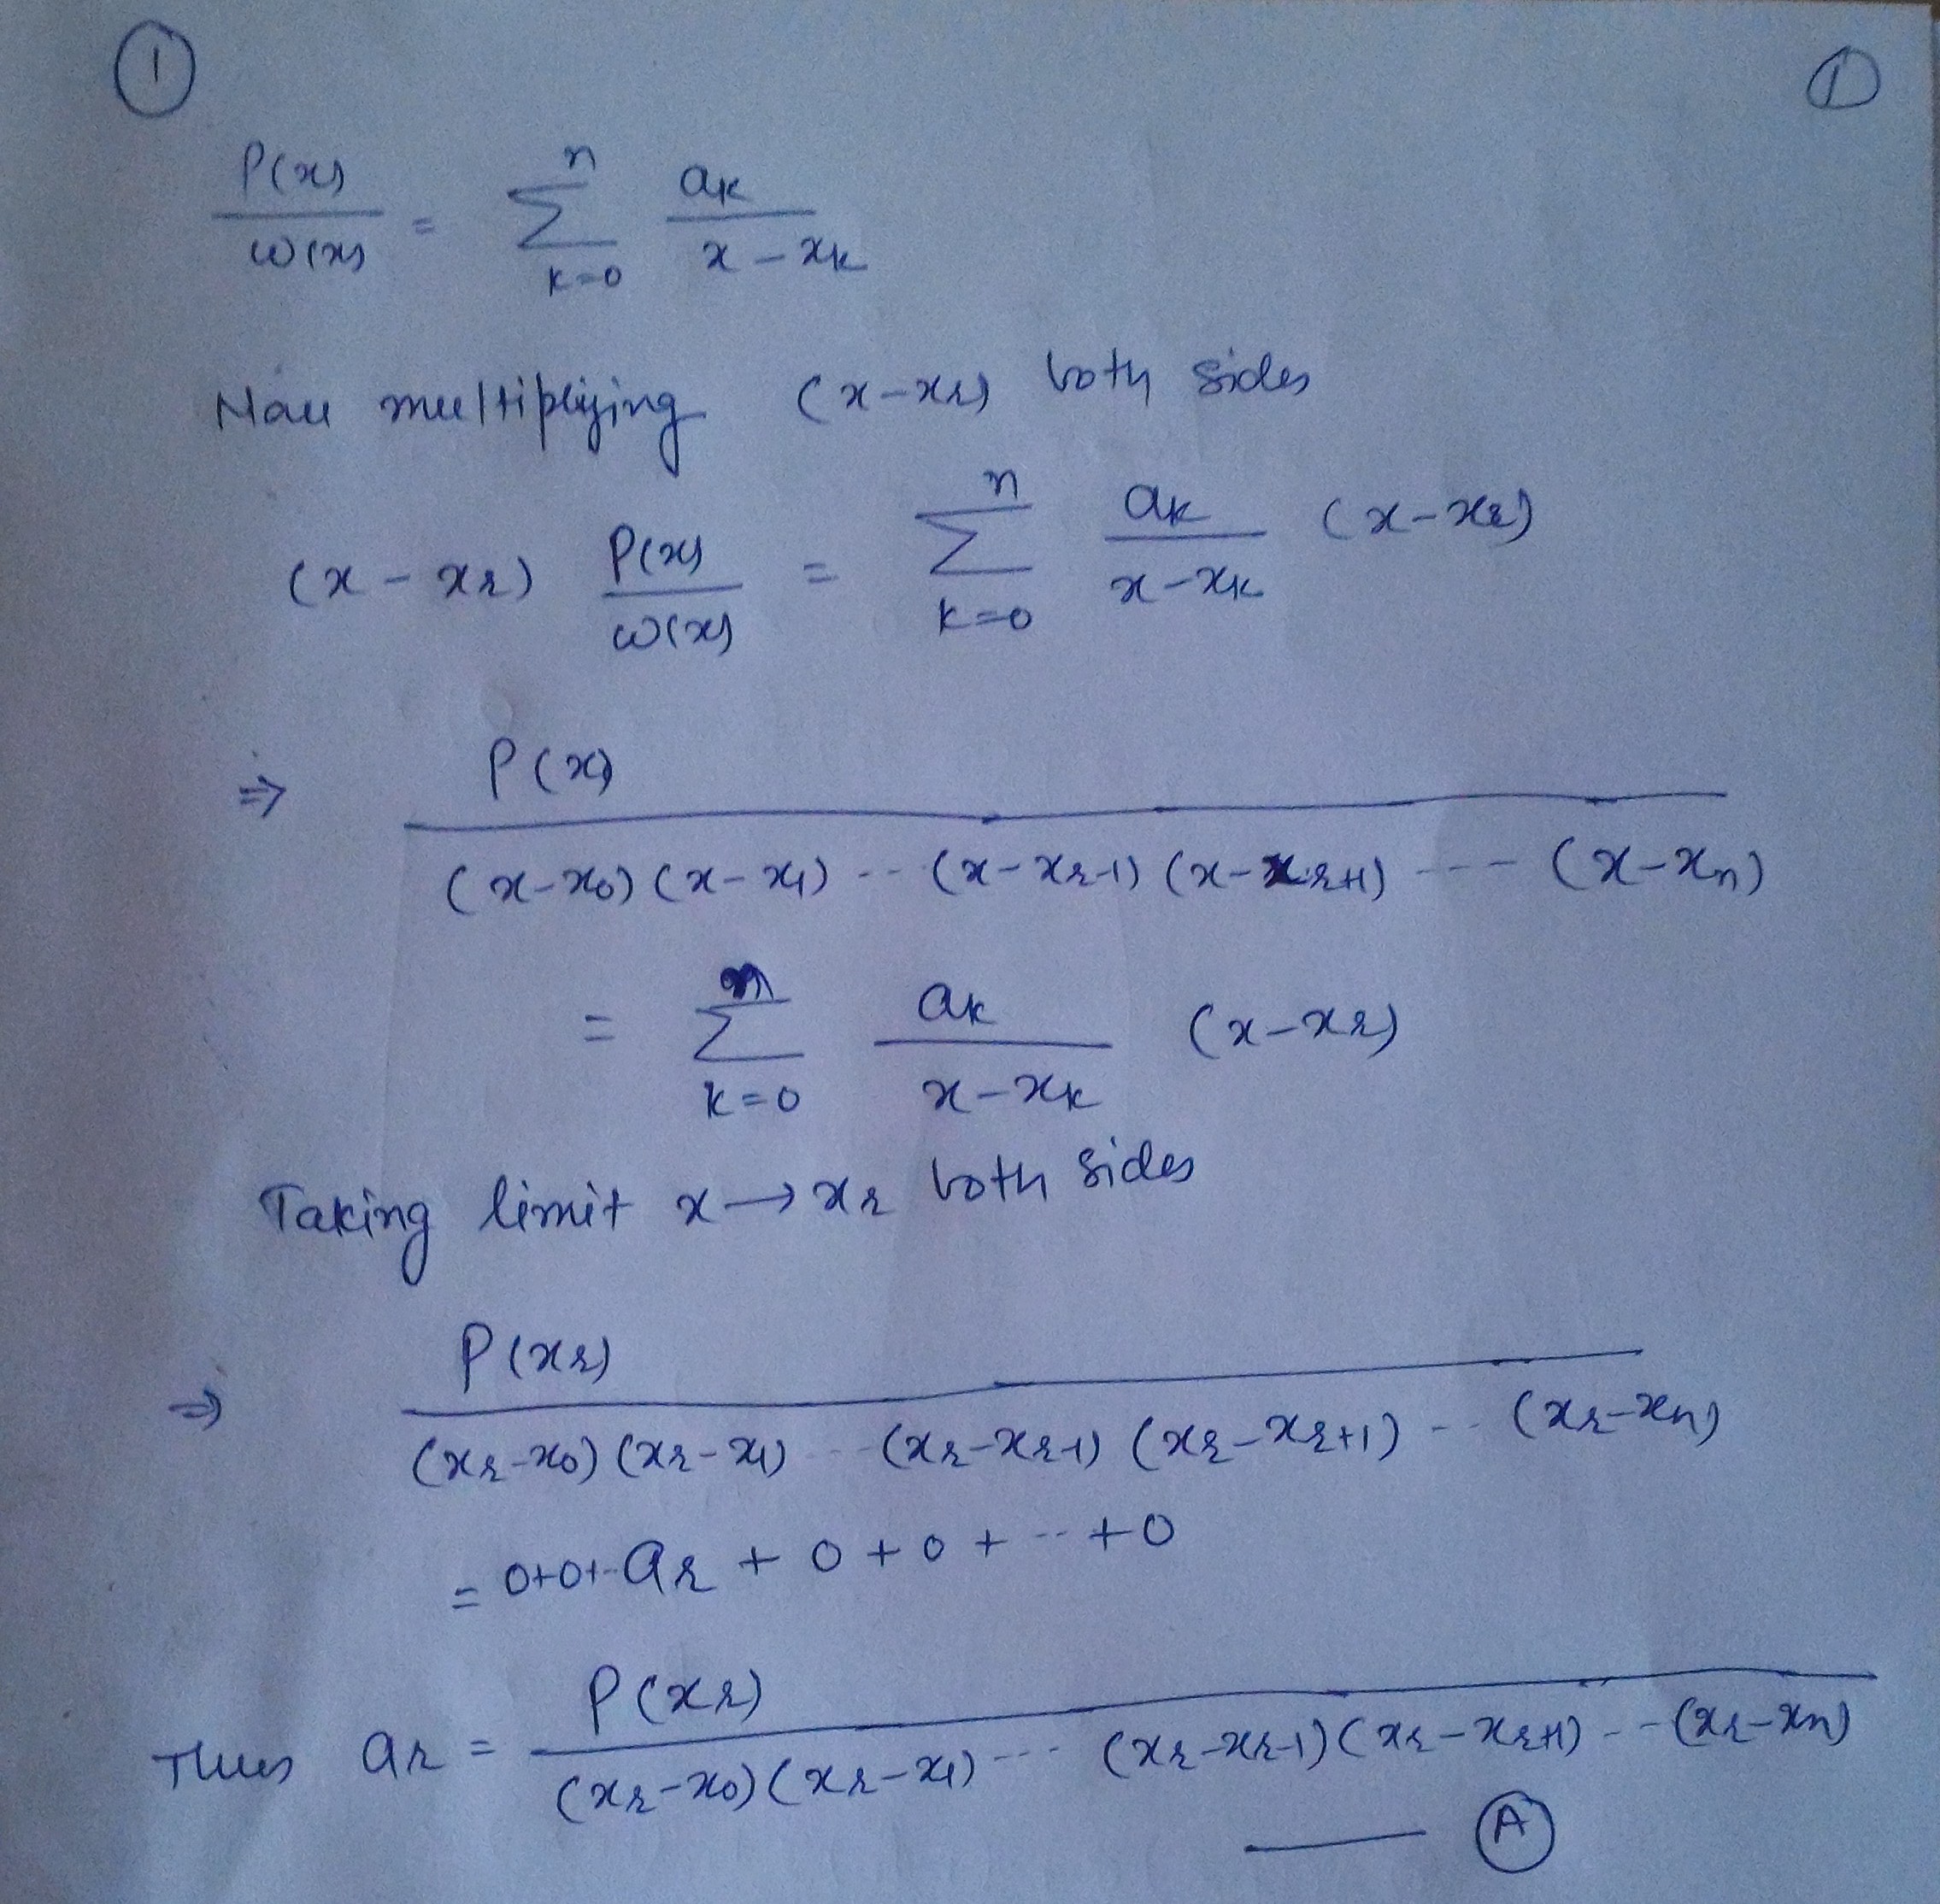 ① ①
P(x)/ω(x) = Σ_{k=0}^{n} a_k/(x - x_k)
Now multiplying (x-x_r) both sides
(x - x_r) P(x)/ω(x) = Σ_{k=0}^{n} a_k/(x-x_k) (x-x_r)
⇒ P(x)/((x-x_0)(x-x_1) -- (x-x_{r-1})(x-x_{r+1}) --- (x-x_n))
= Σ_{k=0}^{n} a_k/(x-x_k) (x-x_r)
Taking limit x→x_r both sides
⇒ P(x_r)/((x_r-x_0)(x_r-x_1) --- (x_r-x_{r-1})(x_r-x_{r+1}) -- (x_r-x_n))
= 0+0+-- a_r + 0 + 0 + --- + 0
Thus a_r = P(x_r)/((x_r-x_0)(x_r-x_1) --- (x_r-x_{r-1})(x_r-x_{r+1}) --- (x_r-x_n))
— Ⓐ